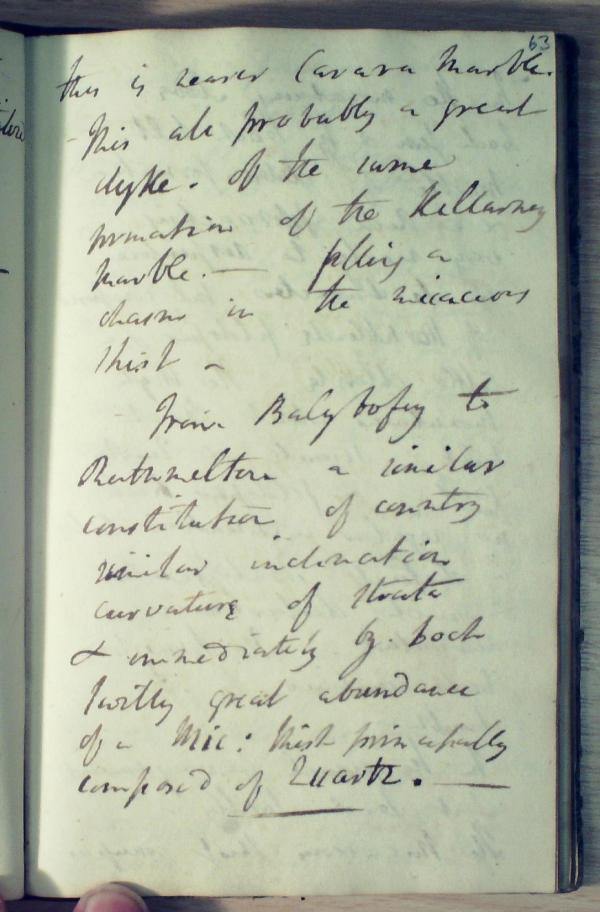 63
this is nearer Carara Marble.
- This ale probably a great
dyke. Of the same
formation of the Killarney
Marble. — filling a
chasm in the micaceous
Shist -
From Balybofey to
Rathmelton a similar
constitution of country
similar inclination
curvature of strata
& immediately by Loch
Swilly great abundance
of a Mic: Shist principally
composed of Quartz. —